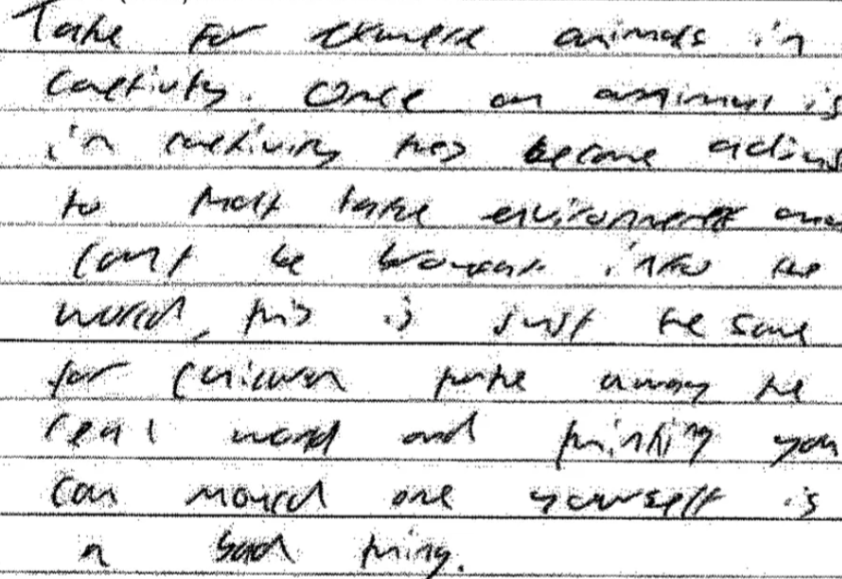 Take for exmere animals in
captivity. Once an animul is
in captivity they become actions
to that take environment and
cant be brougt into the
world, this is just the same
for children take away the
real world and thinking you
can mould one yourself is
a bad thing.